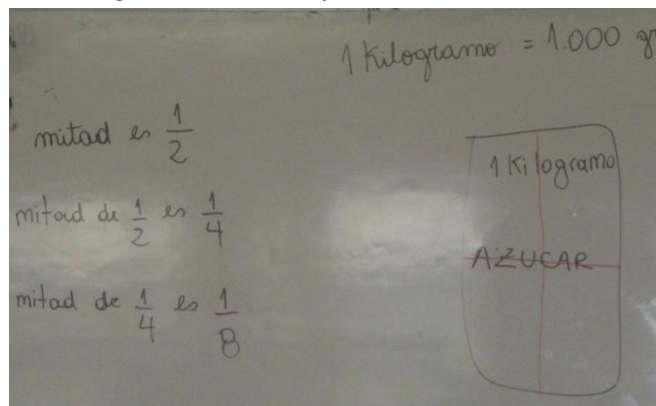 1 Kilogramo = 1.000 gr
mitad es 1/2
mitad de 1/2 es 1/4
mitad de 1/4 es 1/8
1 Kilogramo
AZUCAR